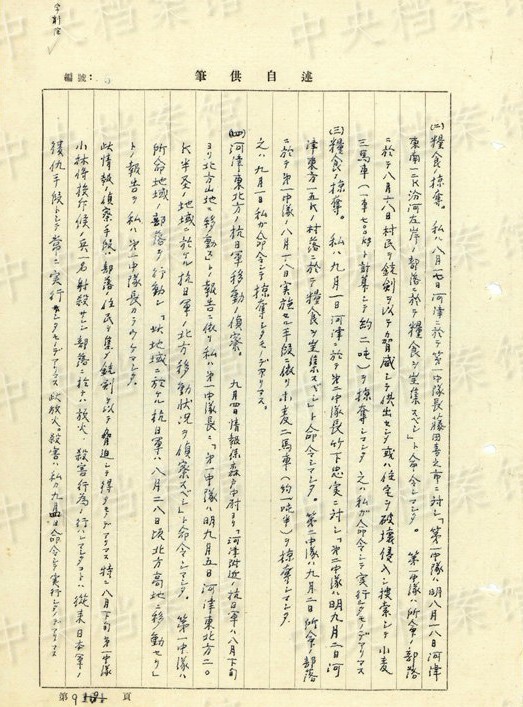 述自供筆
編號:
(二)糧食ノ掠奪。私ハ八月一七日河津ニ於テ第一中隊長藤田善之市ニ対シ「第一中隊ハ明八月一八日河津
東南一二K汾河左岸ノ部落ニ於テ糧食ヲ蒐集スベシ」ト命令シマシタ。第一中隊ハ所命ノ部落
ニ於テ八月一八日村民ヲ銃剣ヲ以テ脅威シテ供出セシメ或ハ住宅ヲ破壊侵入シ捜索シテ小麦
三馬車(一車七〇〇瓩ト計算シテ約二噸)ヲ掠奪シマシタ 之ハ私ガ命令シテ実行シタモノデアリマス
(三)糧食ノ掠奪。私ハ九月一日河津ニ於テ第二中隊長竹下忠実ニ対シ「第二中隊ハ明九月二日河
津東方一五Kノ村落ニ於テ糧食ヲ蒐集スベシ」ト命令シマシタ。第二中隊ハ九月二日所命ノ部落
ニ於テ第一中隊ノ八月一八日実施セル手段ニ依リ小麦二馬車(約一吨半)ヲ掠奪シマシタ
之ハ九月一日私ガ命令シテ掠奪シタモノデアリマス。
(四)河津東北方ノ抗日軍移動ノ偵察。九月四日情報係森戸中尉ヨリ「河津附近ノ抗日軍ハ八月下旬
ヨリ北方山地ニ移動セリ」トノ報告ニ依リ私ハ第一中隊長ニ「第一中隊ハ明九月五日河津東北方二〇
K半圣ノ地域ニ於ケル抗日軍ノ北方移動状況ヲ偵察スベシ」ト命令シマシタ。第一中隊ハ
所命地域ノ部落ヲ行動シ「此地域ニ於ケル抗日軍ハ八月二八日頃北方高地ニ移動セリ」
トノ報告ヲ私ハ第一中隊長カラウケマシタ。
此情報ノ偵察手段ハ部落住民ヲ集メ銃剣ヲ以テ脅迫シテ得タモノデアリマス 特ニ八月下旬第一中隊
小林伍長斥候ノ兵一名射殺サレシ部落ニ於テハ放火、殺害行為ノ行ハレマシタコトハ従来日本軍ノ
復仇手段トシテ常ニ実行シタモノデアリマス 此放火、殺害ハ私ガ九月四日命令シテ実行シタノデアリマス
第 9 頁